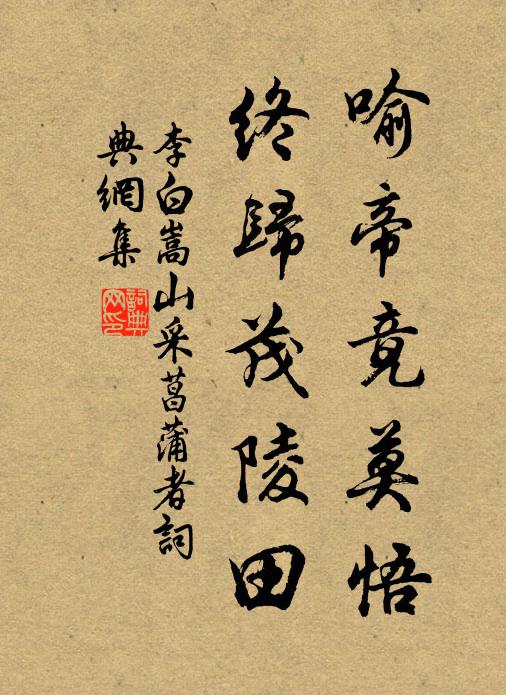 喻帝竟莫悟
終歸茂陵田
李白嵩山采菖蒲者詞
典網集
詞典網印